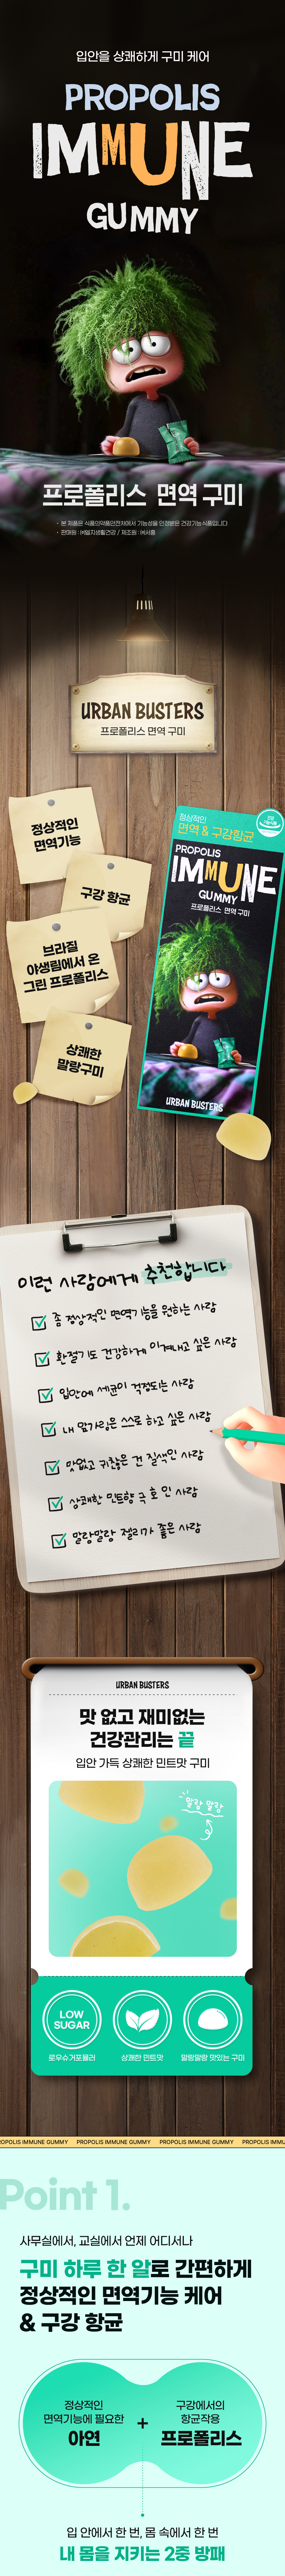 입안을 상쾌하게 구미 케어
PROPOLIS
IMMUNE
GUMMY
프로폴리스 면역 구미
- 본 제품은 식품의약품안전처에서 기능성을 인정받은 건강기능식품입니다
- 판매원 : ㈜엘지생활건강 / 제조원 : ㈜서흥
URBAN BUSTERS
프로폴리스 면역 구미
정상적인
면역기능
구강 항균
브라질
야생림에서 온
그린 프로폴리스
상쾌한
말랑구미
정상적인
면역 & 구강항균
PROPOLIS
IMMUNE
GUMMY
프로폴리스 면역 구미
URBAN BUSTERS
이런 사람에게 추천합니다
좀 정상적인 면역기능을 원하는 사람
환절기도 건강하게 이겨내고 싶은 사람
입안에 세균이 걱정되는 사람
내 앞가림은 스스로 하고 싶은 사람
맛없고 귀찮은 건 질색인 사람
상쾌한 민트향 극 호 인 사람
말랑말랑 젤리가 좋은 사람
URBAN BUSTERS
맛 없고 재미없는
건강관리는 끝
입안 가득 상쾌한 민트맛 구미
말랑 말랑
LOW
SUGAR
로우슈거포뮬러
상쾌한 민트맛
말랑말랑 맛있는 구미
ROPOLIS IMMUNE GUMMY PROPOLIS IMMUNE GUMMY PROPOLIS IMMUNE GUMMY PROPOLIS IMMU
Point 1.
사무실에서, 교실에서 언제 어디서나
구미 하루 한 알로 간편하게
정상적인 면역기능 케어
& 구강 항균
정상적인
면역기능에 필요한
아연
+
구강에서의
항균작용
프로폴리스
입 안에서 한 번, 몸 속에서 한 번
내 몸을 지키는 2중 방패